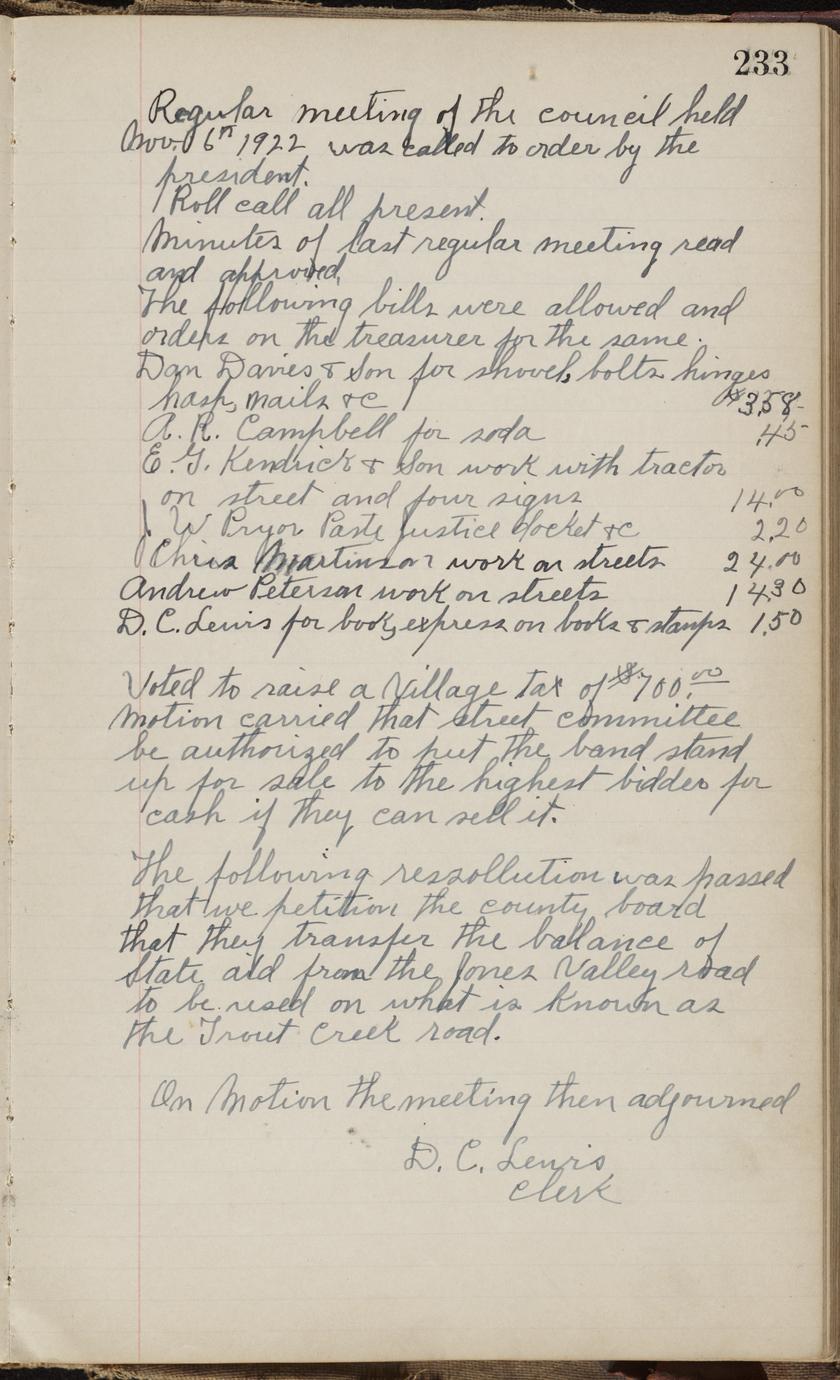 233
Regular meeting of the council held
Nov. 6th 1922 was called to order by the
president.
Roll call all present.
Minutes of last regular meeting read
and approved,
The following bills were allowed and
orders on the treasurer for the same.
Dan Davies & Son for shovel, bolts hinges
hasp, nails &c $3.58
A. R. Campbell for soda .45
E. G. Kendrick & Son work with tractor
on street and four signs 14.00
J W Pryor Paste Justice docket &c 2.20
Chris Martinson work on streets 24.00
Andrew Peterson work on streets 14.30
D. C. Lewis for book, express on books & stamps 1.50
Voted to raise a Village tax of $700.00
Motion carried that street committee
be authorized to put the band stand
up for sale to the highest bidder for
cash if they can sell it.
The following ressollution was passed
that we petition the county board
that they transfer the ballance of
State aid from the Jones Valley road
to be used on what is known as
the Trout Creek road.
On Motion the meeting then adjourned
D. C. Lewis
Clerk